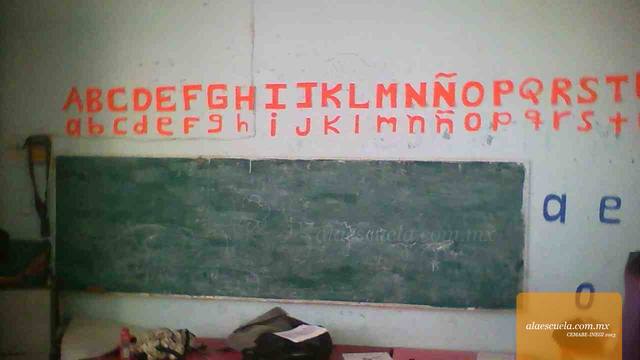 ABCDEFGHIJKLMNÑOPQRST
abcdefghijklmnñopqrst
alaescuela.com.mx
a e
o
alaescuela.com.mx
CEMABE-INEGI 2013